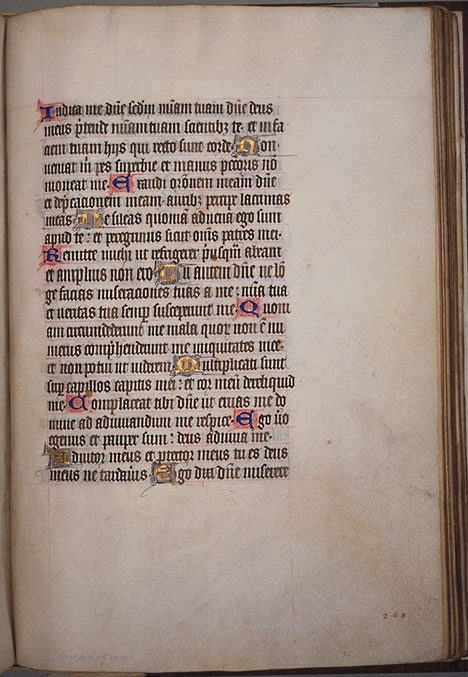 Iudica me dñe scdm miam tuam dñe deus
meus ptende miam tuam scientibz te et iusta
ciam tuam hijs qui recto sunt corde Non
ueniat in pes superbie et manus pctoris nō
moueat me Exaudi orōnem meam dñe
et dpcacionem meam auribz percipe lacrimas
meas Ne sileas quoniā aduena ego sum
apud te et peregrinus sicut oms patres mei
Remitte michi ut refrigerer priusquā abeam
et amplius non ero Tu autem dñe ne lō
ge facias miseraciones tuas a me mia tua
et ueritas tua semp susceperunt me Quoni
am circumdederunt me mala quor non ē nu
merus comphenderunt me iniquitates mee
et non potui ut uiderem Multiplicati sunt
sup capillos capitis mei et cor meū dereliquid
me Complaceat tibi dñe ut eruas me do
mine ad adiuuandum me respice Ego uo
egenus et pauper sum deus adiuua me
Adiutor meus et ptector meus tu es deus
meus ne tardaūis Ego dixi dñe miserere
268